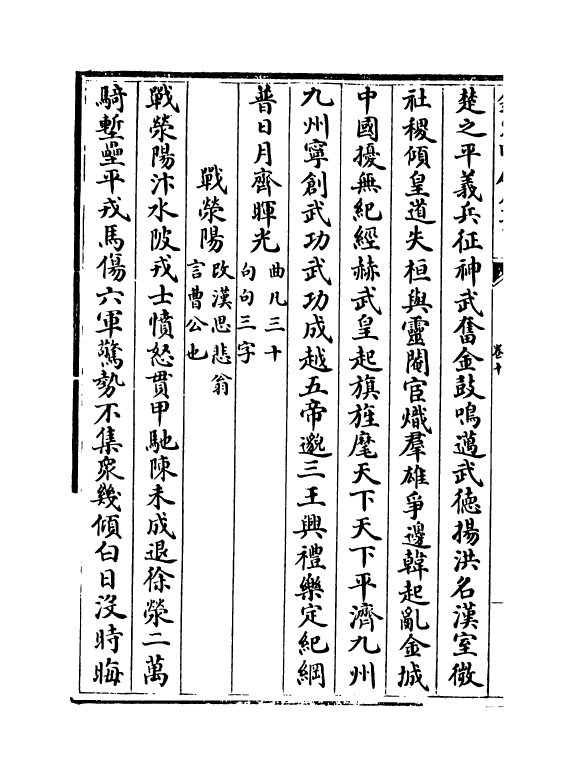 楚之平義兵征神武奮金鼓鳴邁武德揚洪名漢室微
社稷傾皇道失桓與靈閹官熾羣雄爭邊韓起亂金城
中國擾無紀經赫武皇起旗旌麾天下天下平濟九州
九州寧創武功武功成越五帝邈三王興禮樂定紀綱
普日月齊暉光
曲凡三十
句句三字
戰滎陽
改漢思悲翁
言曹公也
戰滎陽汴水陂戎士憤怒貫甲馳陳未成退徐榮二萬
騎塹壘平戎馬傷六軍驚勢不集衆幾傾白日沒時晦
卷十